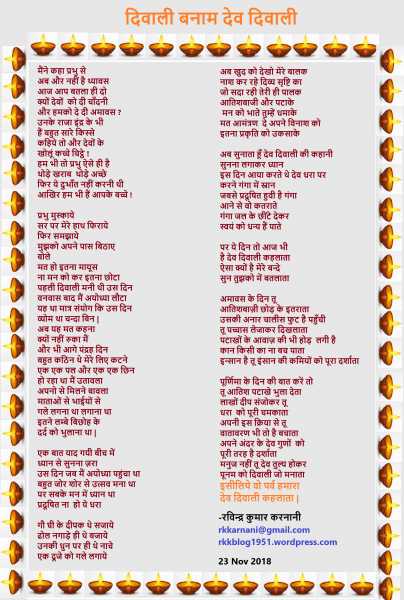 दिवाली बनाम देव दिवाली
मैंने कहा प्रभु से
अब और नहीं है ध्यावस
आज आप बतला ही दो
क्यों देवों को दी चाँदनी
और हमको दे दी अमावस ?
उनके राजा इंद्र के भी
हैं बहुत सारे किस्से
कहिये तो और देवों के
खोलूं कच्चे चिट्ठे !
हम भी तो प्रभु ऐसे ही है
थोड़े खराब थोड़े अच्छे
फिर ये दुभाँत नहीं करनी थी
आखिर हम भी हैं आपके बच्चे !
प्रभु मुस्काये
सर पर मेरे हाथ फिराये
फिर समझाये
मुझको अपने पास बिठाए
बोले
मत हो इतना मायूस
ना मन को कर इतना छोटा
पहली दिवाली मनी थी उस दिन
वनवास बाद मैं अयोध्या लौटा
यह था मात्र संयोग कि उस दिन
व्योम था चन्दा बिन |
अब यह मत कहना
क्यों नहीं रुका मैं
और भी आगे पंद्रह दिन
बहुत कठिन थे मेरे लिए कटने
एक एक पल और एक एक छिन
हो रहा था मैं उतावला
अपनों से मिलने बावला
माताओं से भाईयों से
गले लगना था लगाना था
इतने लम्बे बिछोह के
दर्द को भुलाना था |
एक बात याद गयी बीच में
ध्यान से सुनना ज़रा
उस दिन जब मैं अयोध्या पहुंचा था
बहुत जोर शोर से उत्सव मना था
पर सबके मन में ध्यान था
प्रदूषित ना हो ये धरा
गौ घी के दीपक थे सजाये
ढोल नगाड़े ही थे बजाये
उनकी धुन पर ही थे नाचे
एक दूजे को गले लगाये
अब खुद को देखो मेरे बालक
नाश कर रहे दिव्य सृष्टि का
जो सदा रही तेरी ही पालक
आतिशबाजी और पटाके
मन को भाते तुम्हें धमाके
मत आमंत्रण दे अपने विनाश को
इतना प्रकृति को उकसाके
अब सुनाता हूँ देव दिवाली की कहानी
सुनना लगाकर ध्यान
इस दिन आया करते थे देव धरा पर
करने गंगा में स्नान
जबसे प्रदूषित हुयी है गंगा
आने से वो कतराते
गंगा जल के छींटे देकर
स्वयं को धन्य हैं पाते
पर ये दिन तो आज भी
है देव दिवाली कहलाता
ऐसा क्यों है मेरे बन्दे
सुन तुझको मैं बतलाता
अमावस के दिन तू
आतिशबाज़ी छोड़ के इतराता
उसकी अनार चालीस फुट है पहुँची
तू पच्चास लेजाकर दिखलाता
पटाखों के आवाज़ की भी होड़ लगी है
कान किसी का ना बच पाता
इन्सान है तू इंसान की कमियों को पूरा दर्शाता
पूर्णिमा के दिन की बात करें तो
तू आतिश पटाखे भुला देता
लाखों दीप संजोकर तू
धरा को पूरी चमकाता
अपनी इस क्रिया से तू
वातावरण भी तो है बचाता
अपने अंदर के देव गुणों को
पूरी तरह है दर्शाता
मनुज नहीं तू देव तुल्य होकर
पूनम को दिवाली जो मनाता
इसीलिये वो पर्व हमारा
देव दिवाली कहलाता |
-रविन्द्र कुमार करनानी
rkkarnani@gmail.com
rkkblog1951.wordpress.com
23 Nov 2018